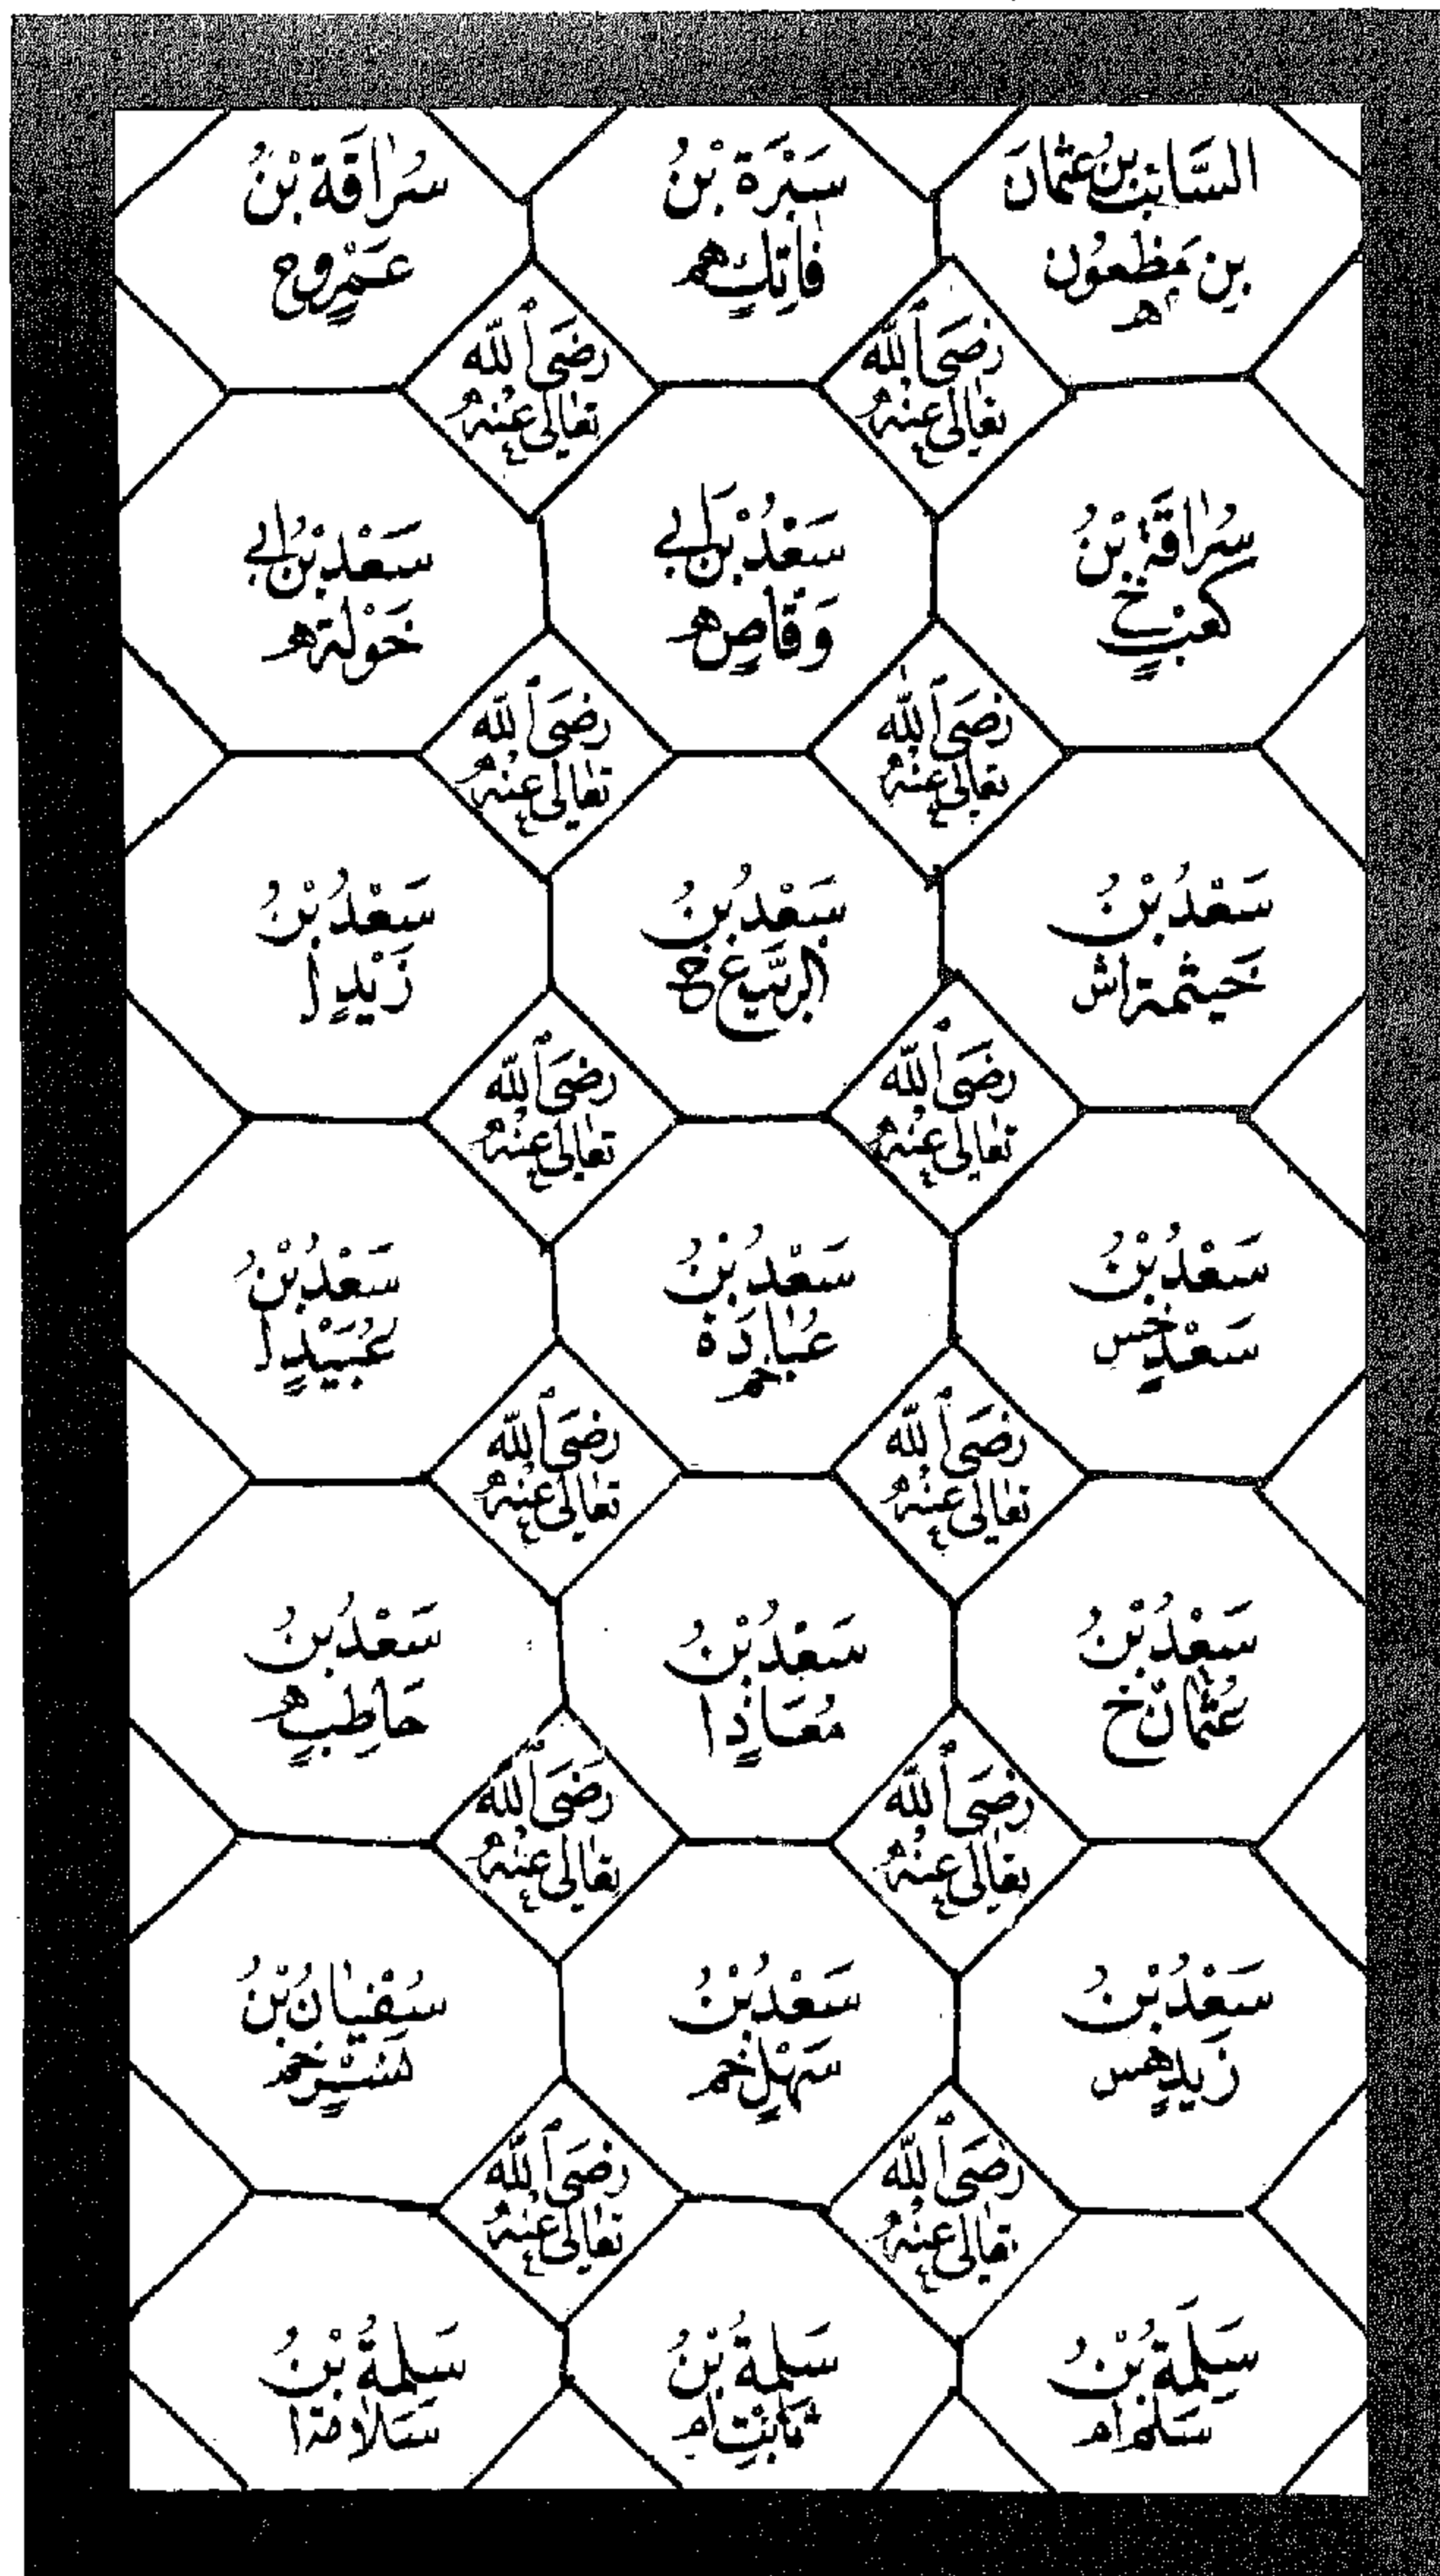 السَّائِبُ بْنُ عُثْمَانَ
بْنِ مَظْعُون
مھ
سَبْرَة بْنُ
فَاتِكٍ ھم
سُرَاقَة بْنُ
عَمْرٍو خ
رَضِيَ اللّٰه
تَعَالٰى عَنْهُ
رَضِيَ اللّٰه
تَعَالٰى عَنْهُ
سُرَاقَةُ بْنُ
كَعْبٍ خ
سَعْدُ بْنُ اَبِي
وَقَّاصٍ ھ
سَعْدُ بْنُ اَبِي
خَوْلَة ھ
رَضِيَ اللّٰه
تَعَالٰى عَنْهُ
رَضِيَ اللّٰه
تَعَالٰى عَنْهُ
سَعْدُ بْنُ
خَيْثَمَة اش
سَعْدُ بْنُ
الرَّبِيْع خ
سَعْدُ بْنُ
زَيْدٍ ا
رَضِيَ اللّٰه
تَعَالٰى عَنْهُ
رَضِيَ اللّٰه
تَعَالٰى عَنْهُ
سَعْدُ بْنُ
سَعْدٍ خس
سَعْدُ بْنُ
عُبَادَة
خم
سَعْدُ بْنُ
عُبَيْدٍ ا
رَضِيَ اللّٰه
تَعَالٰى عَنْهُ
رَضِيَ اللّٰه
تَعَالٰى عَنْهُ
سَعْدُ بْنُ
عُثْمَانَ خ
سَعْدُ بْنُ
مُعَاذٍ ا
سَعْدُ بْنُ
حَاطِبٍ ھ
رَضِيَ اللّٰه
تَعَالٰى عَنْهُ
رَضِيَ اللّٰه
تَعَالٰى عَنْهُ
سَعْدُ بْنُ
زَيْدٍ ھس
سَعْدُ بْنُ
سَهْلٍ خم
سُفْيَانُ بْنُ
نَسْرٍ خم
رَضِيَ اللّٰه
تَعَالٰى عَنْهُ
رَضِيَ اللّٰه
تَعَالٰى عَنْهُ
سَلِمَةُ بْنُ
سَلَم ام
سَلِمَةُ بْنُ
ثَابِتٍ ام
سَلِمَةُ بْنُ
سَلَامَة ا